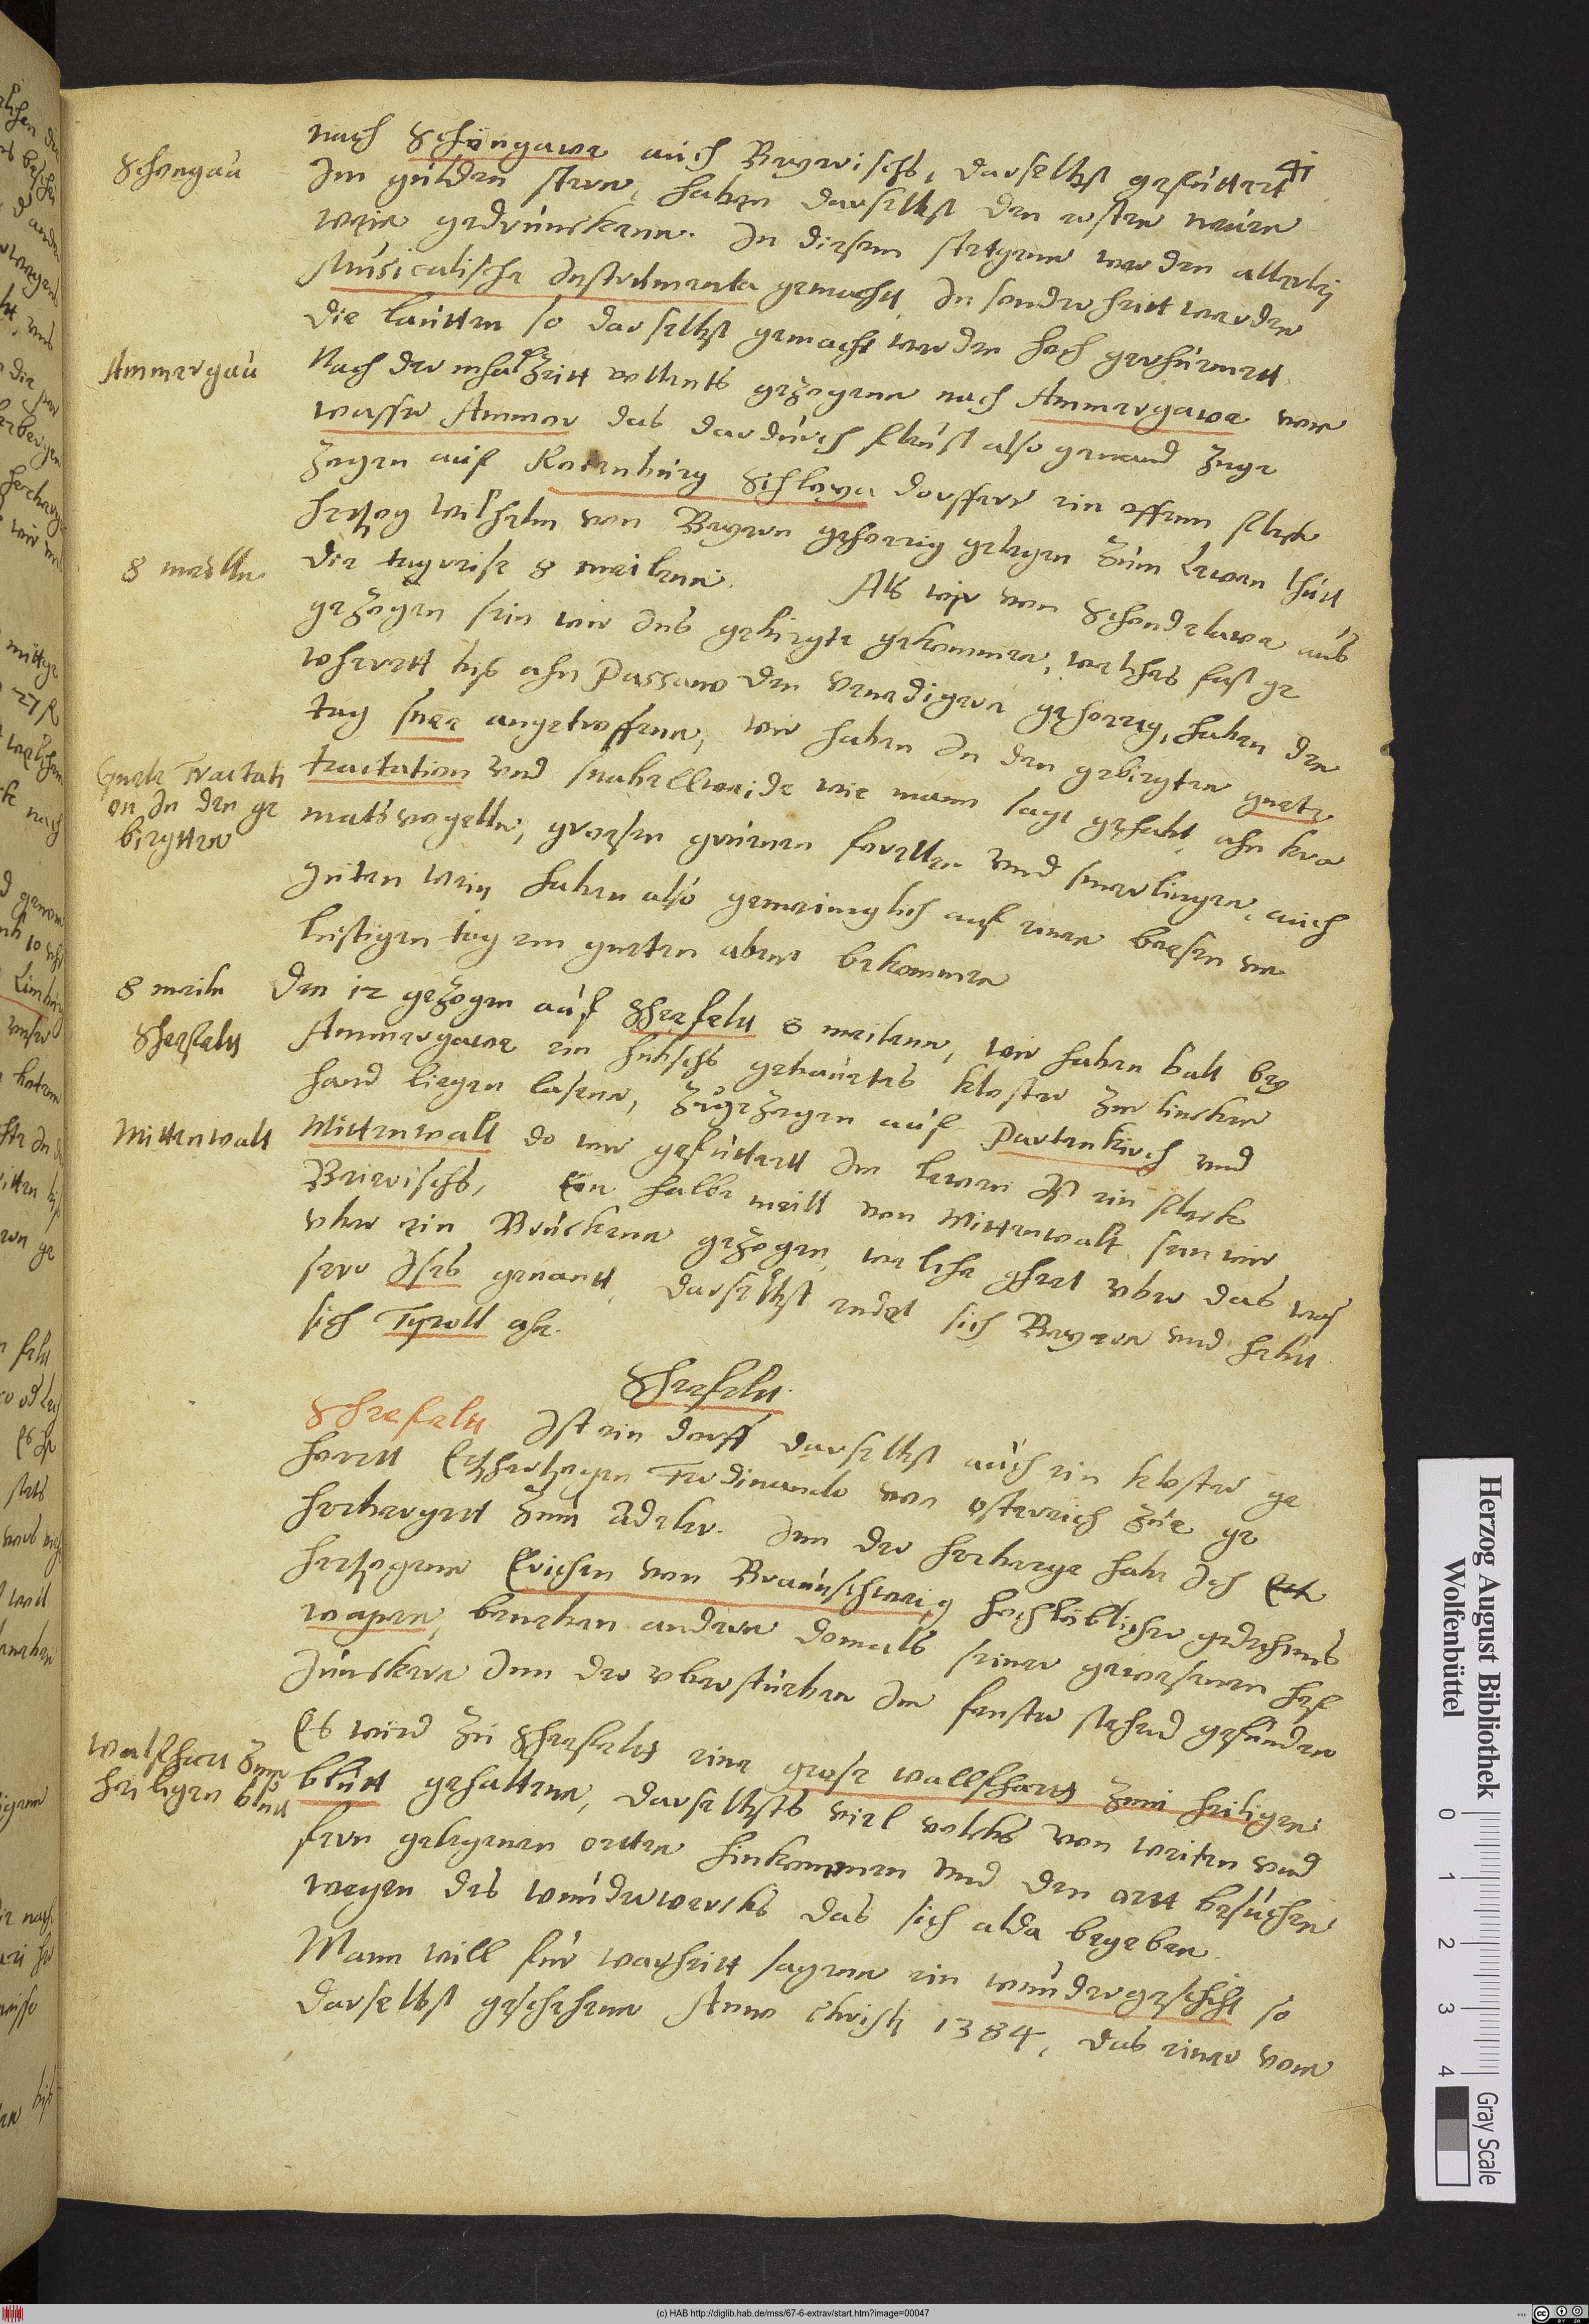 41
nach Schöngawe auch Beyrischs, darselbst gefuttert
Schongau
Im gulden stern, haben darselbst den ersten neuen
wein gedrunckenn. In diesem stetgenn werden allerlej
Musicalische Instrumenta gemacht, In sonderheitt werden
die lautten so darselbst gemacht werden hoch gerhümett.
Ammergau
Nach der mhalzeitt vollents gezogenn nach Ammergawe vom
wasser Ammer das dardurch fleust also genand zuge
zogen auf Rotenburg Schloya dorffern ein offenn fleck
Hertzog Wilhelm von Beyern gehoerig gelegen zum Lewen thutt
8 meilln
die tagreise 8 meilenn. Als wir von Schondelawe aus
gezogen sein wir Ins gebirgte gekommen, welches fast ge
wherett bis ahn Passano den Venedigern gehoerig, haben den
tag snee angetroffenn, wir haben In den gebirgten guete
Guete Tractati
on In den ge
birgtten
tractation vnd snabellweide wie mann sagt gehabt, ahn kra
matsvogelln, groessen gruenen forellen vnd smerlingen, auch
guten wein haben also gemeiniglich auf einen boesen vn
lustigen tag ein gueten abent bekommen
8 meiln
Den 12 gezogen auf Sheefelt 8 meilenn, wir haben balt bey
Sheefelt
Ammergawe ein hubschs gebauetes kloster zur lincken
hand liegen lasenn, zugezogen auf Partenkirch vnd
Mittenwalt
Mittenwalt do wir gefuttertt Im lewen Ist ein fleck
Beierischs, Ein halbe meill von Mittenwalt sein wir
vber ein Bruckenn gezogen, welche gheet vber das was
ser IsEB genantt, darselbst endet sich Beyern vnd hebtt
sich Tyroll ahn.
Sheefeltt.
Sheefeltt Ist ein dorff darselbst auch ein kloster ge
hoertt Ertzhertzogen Ferdinando von Osterreich zue ge
herbergett zum Adeler. Inn der herberge habe Ich
hertzogenn Erichen von Braunschweig hochlöblicher gedechtnus
wapen, beneben andern domals seiner gewesenen hof
Junckern Inn der vberstueben Im fenster stehend gefunden
Es wird zu Sheefeltt eine grose wallfhartt zum heiligen
Walfhart zum
heiligen blutt
blutt gehaltenn, darselbsts viel volcks von weiten vnd
fern gelegenen ortten hinkommen vnd den ortt besuchen
wegen des wunderwercks das sich alda begeben.
Mann will für warheitt sagenn ein wundergeschicht so
darselbst geschehenn Anno Christi 1384, das einer vom
Herzog August Bibliothek
Wolfenbüttel
0 1 2 3 4
Gray Scale
(c) HAB http://diglib.hab.de/mss/67-6-extrav/start.htm?image=00047